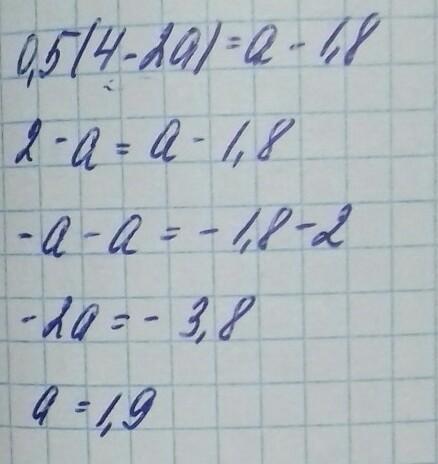 0,5(4-2a)=a-1,8
2-a=a-1,8
-a-a=-1,8-2
-2a=-3,8
a=1,9